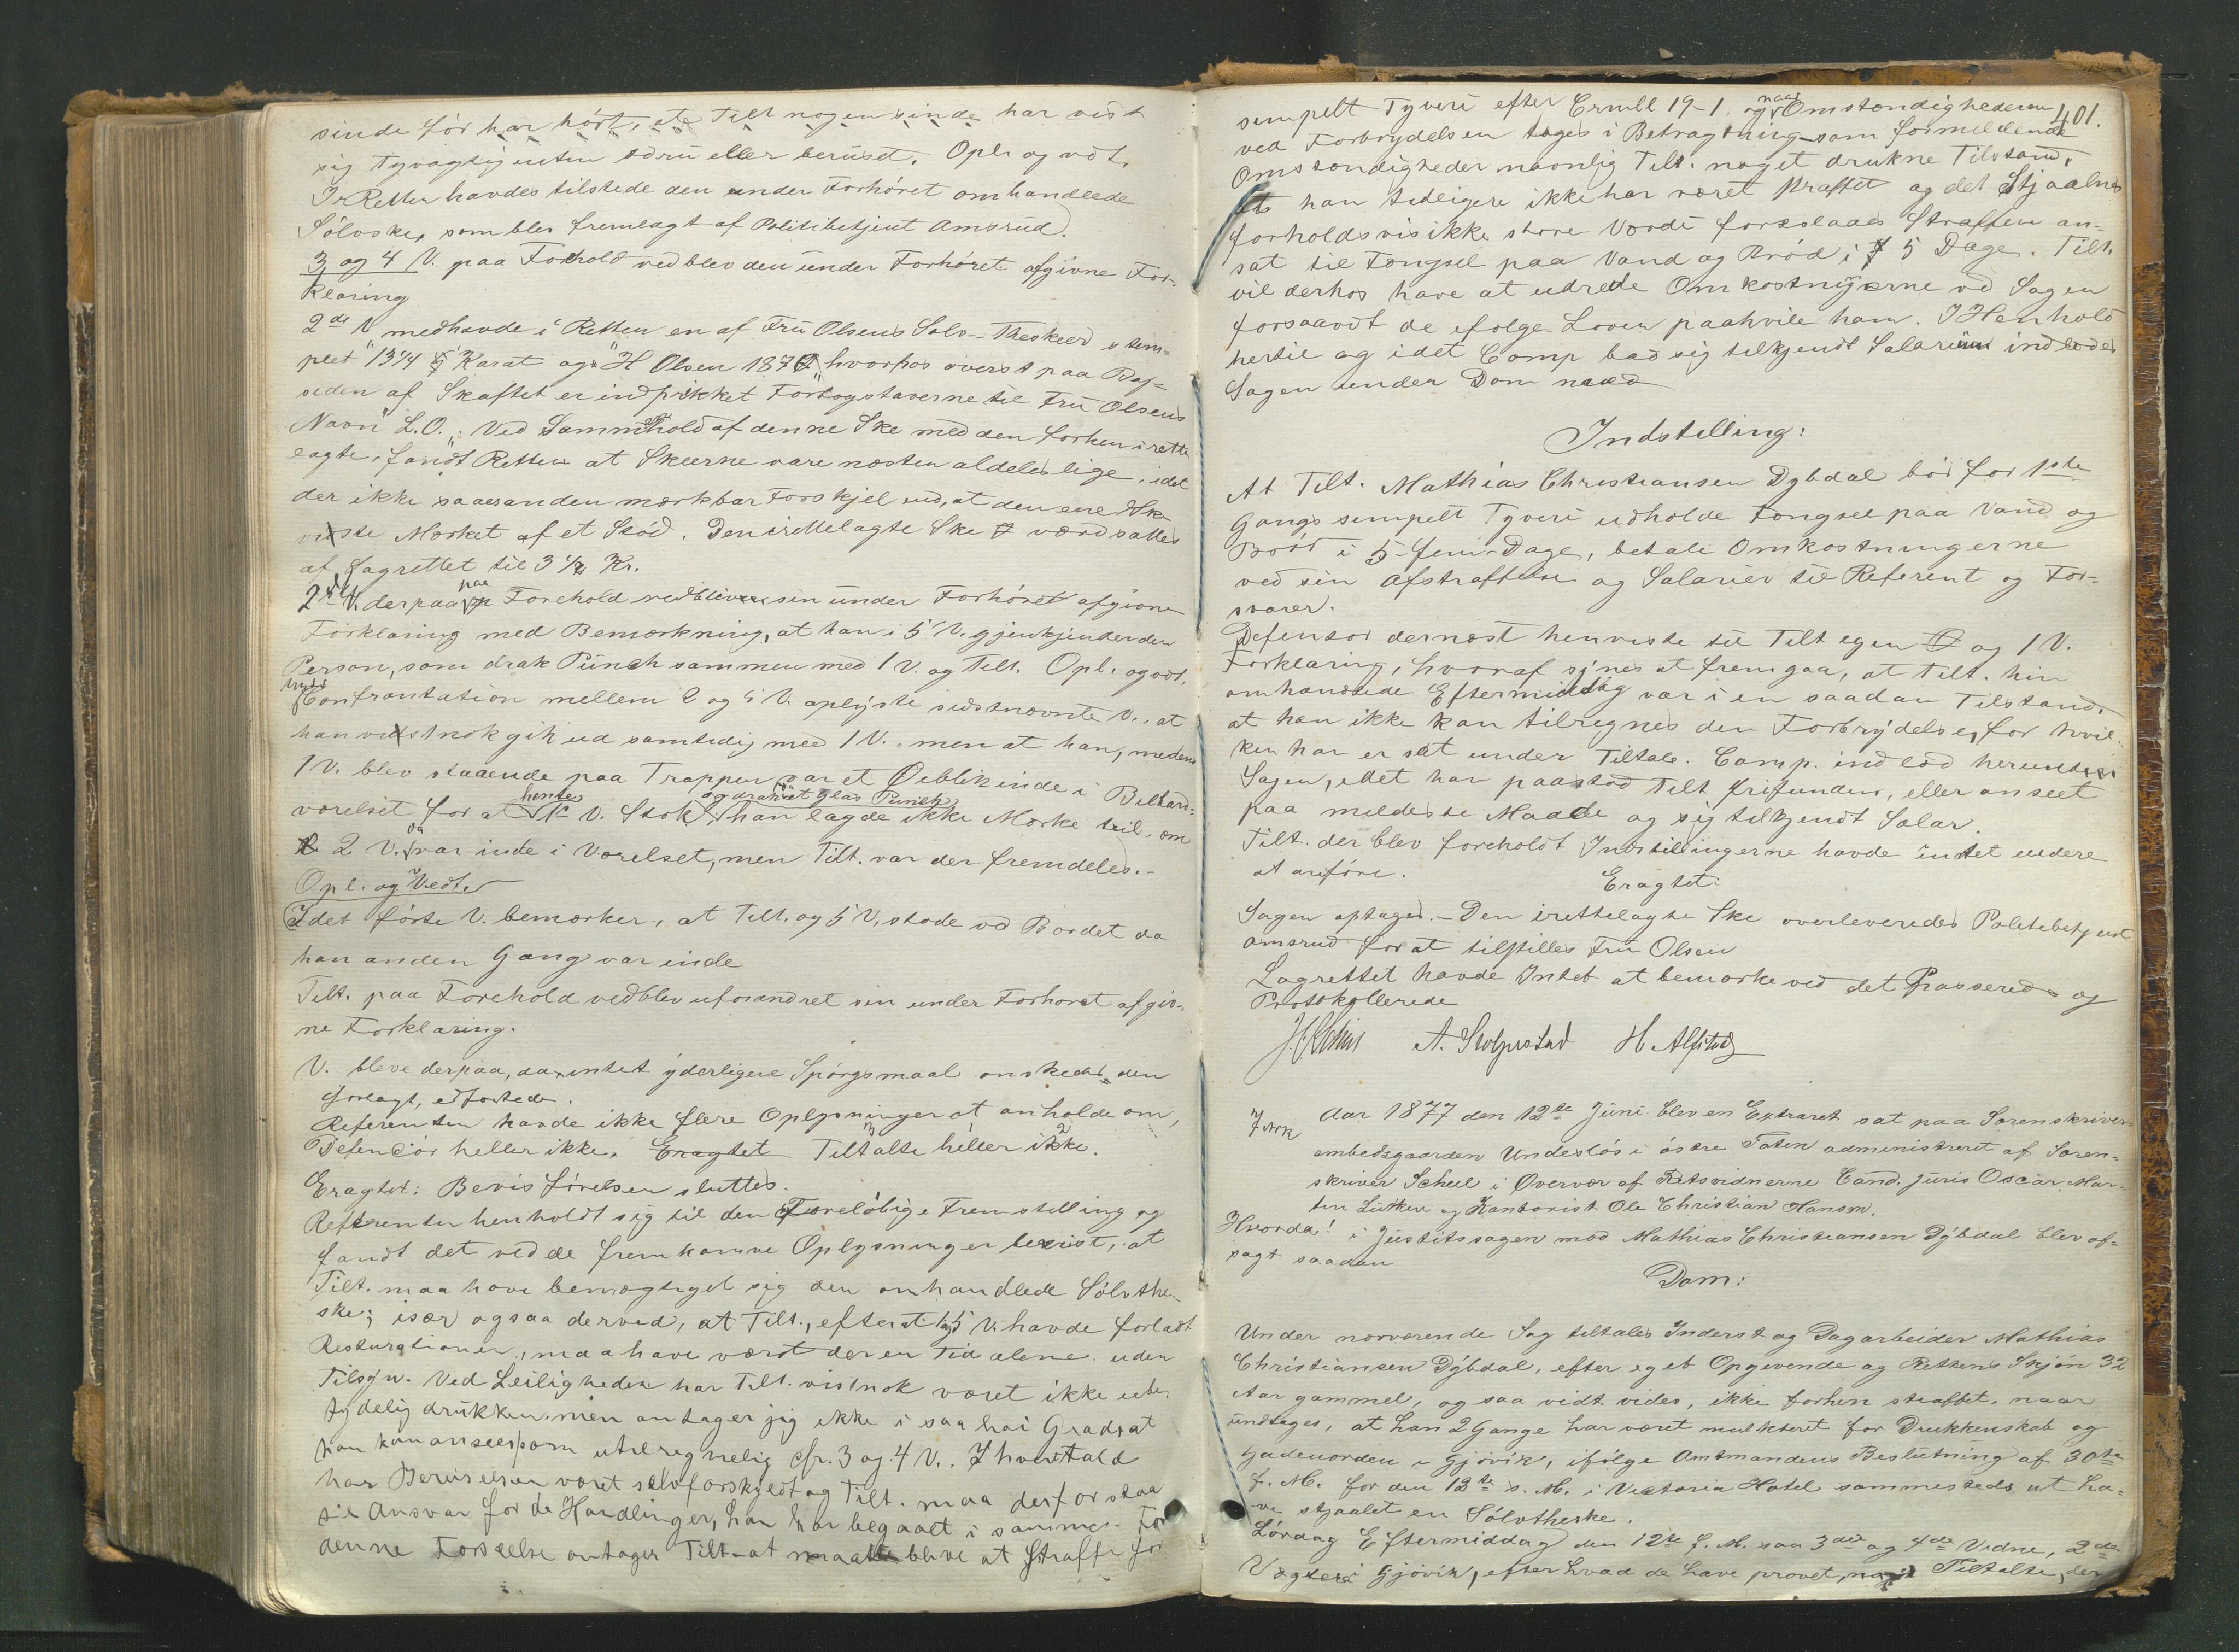 sinde før har hørt, at Tilt nogensinde har vist
sig tyvagtig enten ædru eller beruset. Opl. og vdt.
I Retten havdes tilstede den under Forhøret omhandlede
Sølvske, som blev fremlagt af Politibetjent Amsrud.
3 og 4 V. paa Forehold vedblev den under Forhøret afgivne For-
klaring
2de V. medhavde i Retten en af Fru Olsens Sølv-Theskeer stem-
plet "13 1/4 Karat og "H Olsen 1870", hvorhos øverst paa Bag-
siden af Skaftet er indprikket Forbogstaverne til Fru Olsens
Navn "L.O." Ved Sammenhold af denne Ske med den forhen irette-
lagte, fandt Retten at Skeerne vare næsten aldeles lige, idet
der ikke saaes anden mærkbar Forskjel end, at den ene Ske
viste Mærket af et Stød. Den irettelagte Ske værdsattes
af Lagrettet til 3 1/2 Kr.
2de V. derpaa paa Forehold vedblev sin under Forhøret afgivne
Forklaring med Bemærkning, at han i 5' V. gjenkjender den
Person, som drak Punch sammen med 1 V. og Tilt. Opl. og vdt.
Confrontation mellem 2 og 5 V. oplyste sidstnævnte V., at
han vistnok gik ud samtidig med 1 V. men at han, medens
1 V. blev staaende paa Trappen var et Øieblik inde i Billard-
værelset for at hente 1ste V. Stok og drak et Glas Punch; han lagde ikke Mærke til, om
2 V. da var inde i Værelset, men Tilt. var der fremdeles.-
Opl. og Vedt.
Idet første V. bemærker, at Tilt. og 5 V. stode ved Bordet da
han anden Gang var inde
Tilt. paa Forehold vedblev uforandret sin under Forhøret afgiv-
ne Forklaring.
V. bleve derpaa, da intet yderligere Spørgsmaal ønskedes dem
forlagt, edfæstede.
Referenten havde ikke flere Oplysninger at anholde om,
Defensor heller ikke. Eragtet Tiltalte heller ikke.
Eragtet: Bevisførelsen sluttes.
Referenten henholdt sig til den foreløbige Fremstilling og
fandt det ved de fremkomne Oplysninger bevist, at
Tilt. maa have bemægtiget sig den omhandlede Sølvthe-
ske; især ogsaa derved, at Tilt., efterat 1 og 5 V. havde forladt
Resturationen, maa have været der en Tid alene uden
Tilsyn. Ved Leiligheden har Tilt. vistnok været ikke ube-
tydelig drukken, men antager jeg ikke i saa høi Grad, at
han kan ansees som utilregnelig cfr. 3 og 4 V. I hvertfald
har Beruselsen været selvforskyldt og Tilt. maa derfor staa
til Ansvar for de Handlinger, han har begaaet i samme. For
denne Forseelse antages Tilt. at maatte blive at straffe for
401.
simpelt Tyveri efter Crmll 19-1. og naar Omstændighederne
ved Forbrydelsen tages i Betragtning som formeldende
Omstændigheder navnlig Tilt. noget drukne Tilstand,
at han tidligere ikke har været straffet og det Stjaalnes
forholdsvis ikke store Værdi foreslaaes Straffen an-
sat til Fængsel paa Vand og Brød i 5 Dage. Tilt.
vil derhos have at udrede Omkostningerne ved Sagen
forsaavdt de ifølge Loven paahvile ham. I Henhold
hertil og idet Comp bad sig tilkjendt Salarium indlodes
Sagen under Dom med
Indstilling:
At Tilt. Mathias Christiansen Dybdal bør for 1ste
Gangs simpelt Tyveri udholde Fængsel paa Vand og
Brød i 5-fem-Dage, betale Omkostningerne
ved sin Afstraffelse og Salarier til Referent og For-
svarer.
Defensor dernæst henviste til Tilt egen og 1 V.
Forklaring, hvoraf synes at fremgaa, at Tilt. hin
omhandlede Eftermiddag var i en saadan Tilstand,
at han ikke kan tilregnes den Forbrydelse, for hvil-
ken han er sat under Tiltale. Comp. indlod herunder
Sagen, idet han paastod Tilt frifunden, eller anseet
paa mildeste Maade og sig tilkjendt Salar.
Tilt. der blev foreholdt Indstillingerne havde intet videre
at anføre.
Eragtet:
Sagen optages.- Den irettelagte Ske overleveredes Politibetjent
Amsrud for at tilstilles Fru Olsen
Lagrettet havde Intet at bemærke ved det Passerede og
Protokollerede
A. Stolpestad H. Alfstad
Aar 1877 den 12te Juni blev en Extraret sat paa Sorenskriver-
embedsgaarden Undeslös i østre Toten administreret af Soren-
skriver Scheel i Overvær af Retsvidnerne Cand. juris Oscar Mar-
tin Lütken og Kontorist Ole Christian Hansen.
Hvorda! i Justitssagen mod Mathias Christiansen Dybdal blev af-
sagt saadan
Dom:
Under nærværende Sag tiltales Inderst og Dagarbeider Mathias
Christiansen Dybdal, efter eget Opgivende og Rettens Skjøn 32
Aar gammel, og saa vidt vides, ikke forhen straffet, naar
undtages, at han 2 Gange har været mulkteret for Drukkenskab og
Gadeuorden i Gjøvik, ifølge Amtmandens Beslutning af 30te
f. M. for den 12te s. M. i Victoria Hotel sammesteds at ha-
ve stjaalet en Sølvtheske.
Lørdag Eftermiddag den 12te f. M. saa 3die og 4de Vidne, 2de
Vægtere i Gjøvik, efter hvad de have provet, Tiltalte, der